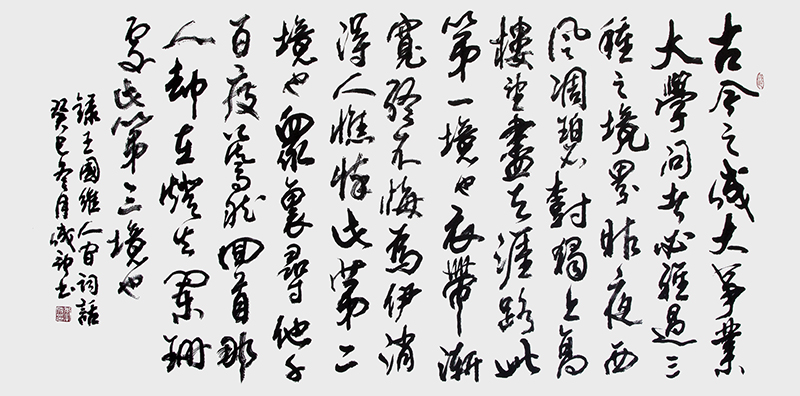 古今之成大事業
大學問者必經過三
種之境界昨夜西
風凋碧樹獨上高
樓望盡天涯路此
第一境也衣帶漸
寬終不悔為伊消
得人憔悴此第二
境也眾裏尋他千
百度驀然回首那
人卻在燈火闌珊
處此第三境也
錄王國維人間詞話
癸巳冬月成書